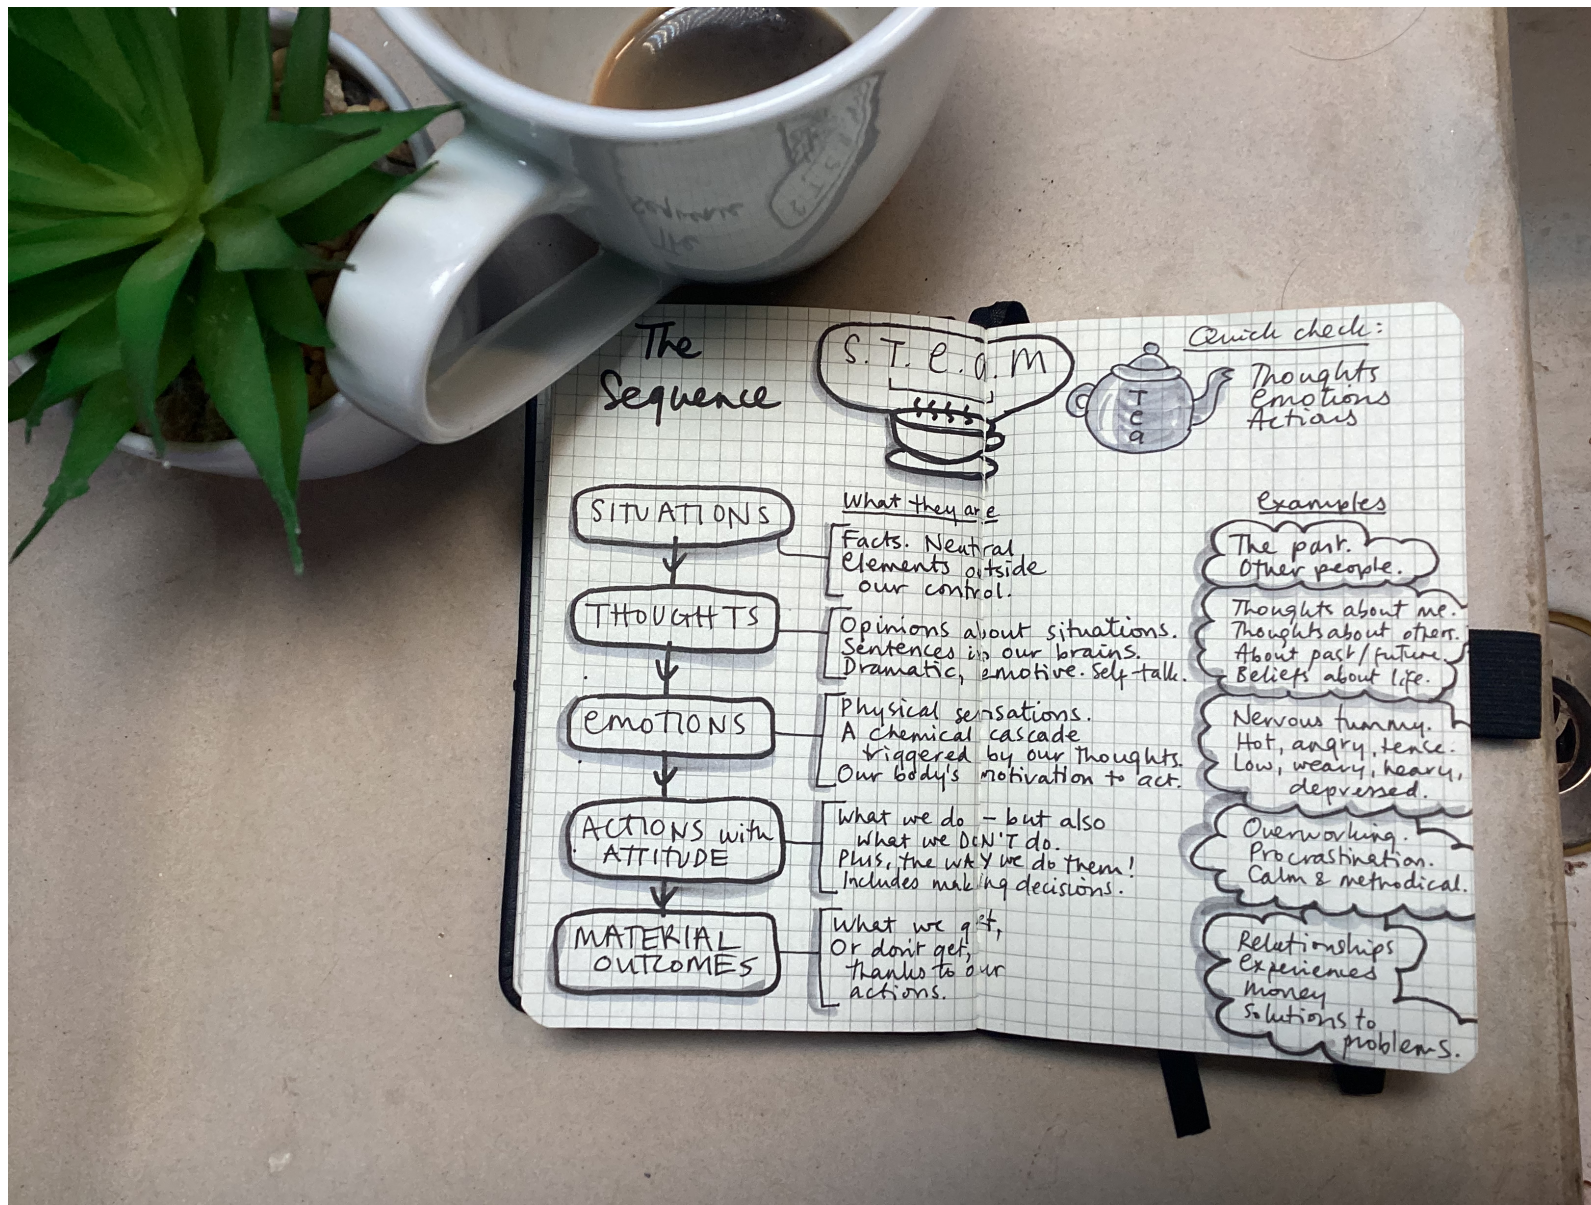 The
Sequence
S.T.e.a.m
T
e
a
Quick check:
Thoughts
emotions
Actions
What they are
Examples
SITUATIONS
Facts. Neutral
elements outside
our control.
The past.
Other people.
THOUGHTS
Opinions about situations.
Sentences in our brains.
Dramatic, emotive. Self-talk.
Thoughts about me.
Thoughts about others.
About past/future.
Beliefs about life.
emOTIONS
Physical sensations.
A chemical cascade
triggered by our thoughts.
Our body's motivation to act.
Nervous tummy.
Hot, angry, tense.
Low, weary, heavy,
depressed.
ACTIONS with
ATTITUDE
What we do – but also
what we DON'T do.
Plus, the WAY we do them!
Includes making decisions.
Overworking.
Procrastination.
Calm & methodical.
MATERIAL
OUTCOMES
What we get,
Or don't get,
thanks to our
actions.
Relationships
experiences
money
Solutions to
problems.